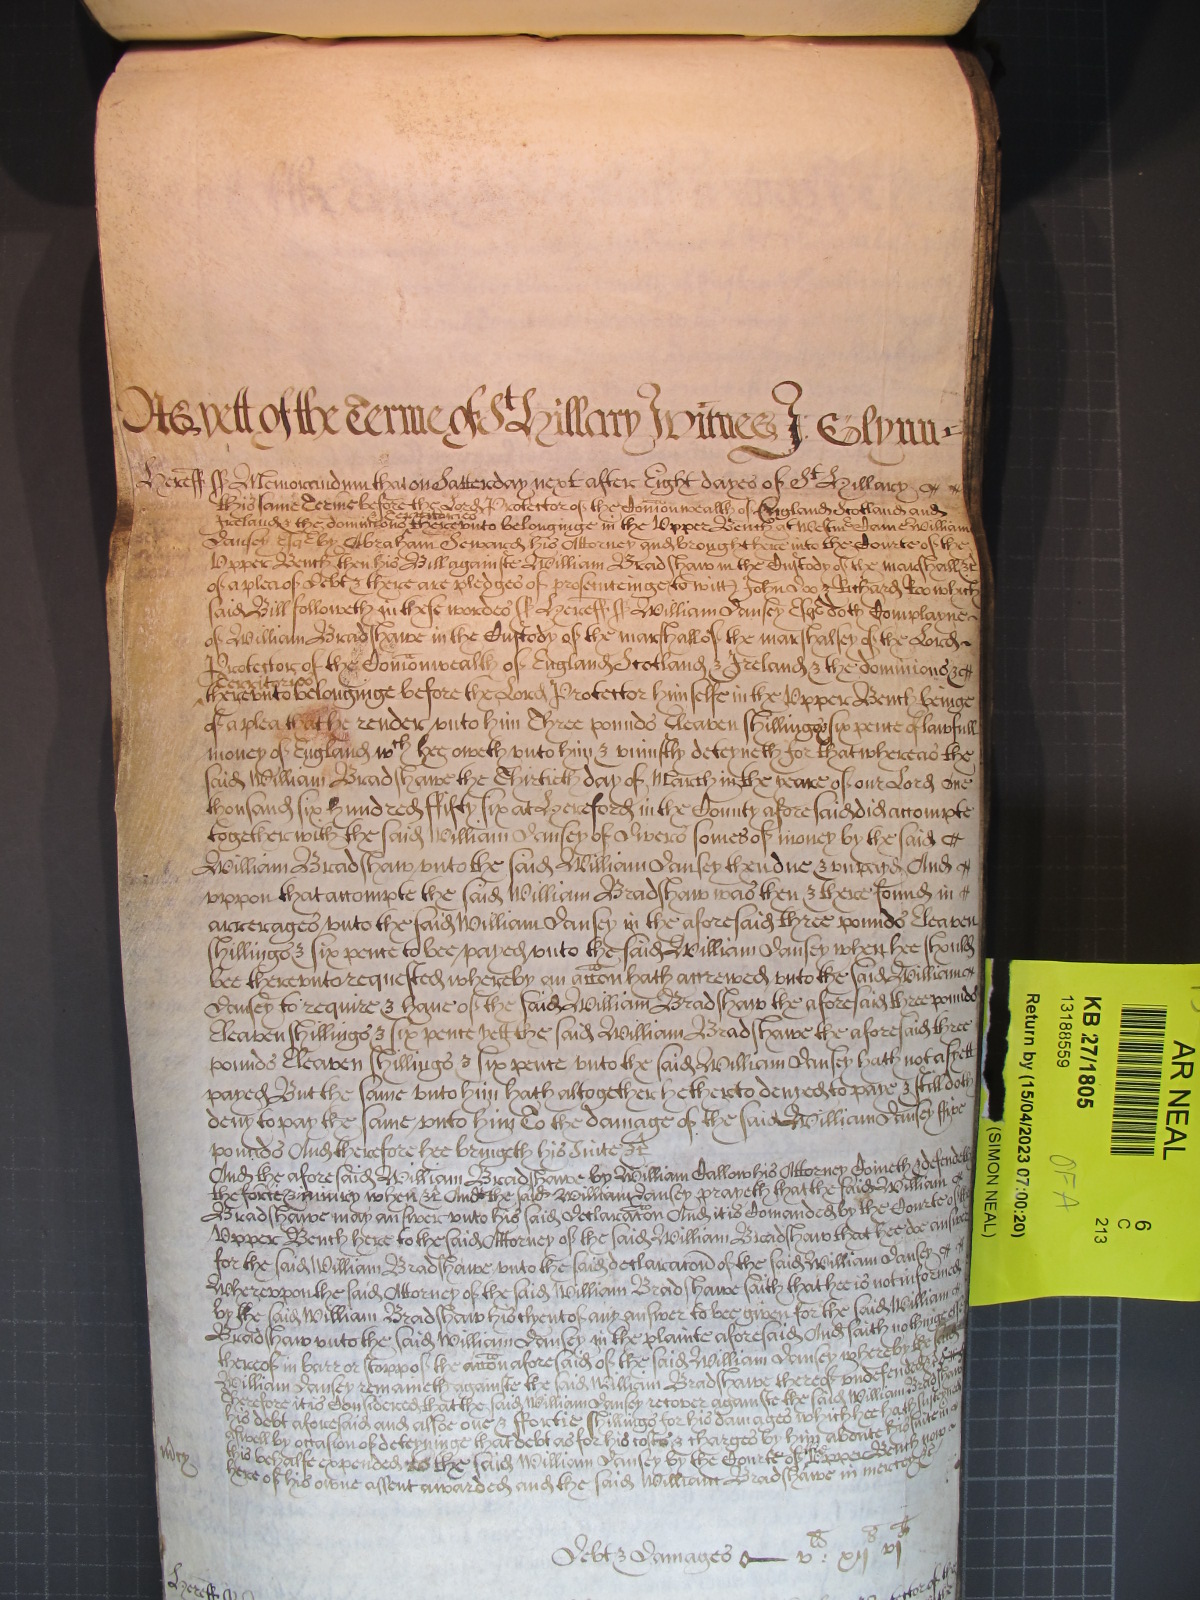 As yett of the Terme of St Hillary Witnes J: Glynn
Hereff ss Memorandum that on Satterday next after Eight dayes of St Hillary
this same Terme before the Lord Protector of the Comonwealth of England Scotland and
Ireland & the dominions & Territories therevnto belonginge in the Vpper Bench at Westmr Came William
Dansey Esqr by Abraham Seward his Attorney and brought here into the Courte of the
Vpper Bench then his Bill againste William Bradshaw in the Custody of the marshall &c
of a plea of debt & there are pledges of prosecuteinge to witt John Doo & Richard Roo which
said Bill followeth in these wordes ss Hereff ss William Dansey Esqr doth Complayne
of William Bradshawe in the Custody of the marshall of the marshalsey of the Lord
Protector of the Comonwealth of England Scotland & Ireland & the dominions &
Territories
therevnto belonginge before the Lord Protector himselfe in the Vpper Bench beinge
of a plea that he render vnto him Three pounds Eleaven shillings & six pence of lawfull
money of England wch hee oweth vnto him & uniustly deteyneth for that whereas the
said William Bradshawe the Thirtieth day of March in the yeare of our Lord one
thousand six hundred ffifty six at Hereford in the County aforesaid did accompte
together with the said William Dansey of divers somes of money by the said
William Bradshaw vnto the said William Dansey then due & vnpayd And
vppon that accompte the said William Bradshaw was then & there found in
arrerages vnto the said William Dansey in the aforesaid three pounds Eleaven
shillings & six pence to bee payed vnto the said William Dansey when hee should
bee therevnto requested whereby an accon hath accrewed vnto the said William
Dansey to require & haue of the said William Bradshaw the aforesaid three pounds
Eleaven shillings & six pence yett the said William Bradshawe the aforesaid three
pounds Eleaven shillings & six pence vnto the said William Dansey hath not as yett
payed But the same vnto him hath altogether hetherto denied to paye & still doth
deny to pay the same vnto him To the damage of the said William Dansey ffive
pounds And therefore hee bringeth his suite &c
And the aforesaid William Bradshawe by William Gallow his Attorney Cometh & defendeth
the force & iniury when &c And the said William Dansey prayeth that the said William
Bradshawe may answer vnto his said declaracon And it is Comanded by the Courte of the
Vpper Bench here to the said Attorney of the said William Bradshaw that hee doe answer
for the said William Bradshawe vnto the said declaracon of the said William Dansey
Wherevpon the said Attorney of the said William Bradshawe saith that hee is not informed
by the said William Bradshaw his Clyent of any answer to bee given for the said William
Bradshaw vnto the said William Dansey in the plainte aforesaid And saith nothinge else
thereof in barr or stopp of the accon aforesaid of the said William Dansey whereby the said
William Dansey remaineth againste the said William Bradshawe thereof vndefended
Therefore it is Considered that the said William Dansey recover againste the said William Bradshaw
his debt aforesaid and alsoe one & ffortie shillings for his damages which hee hath susteyned
aswell by occasion of deteyninge that debt as for his costs & charges by him aboute his suite in
this behalfe expended to the said William Dansey by the Courte of the Vpper Bench now
here of his owne assent awarded and the said William Bradshawe in mercy &c
Mcy
Debt & Damages v: xij vj
Hereff
AR NEAL
6
C
213
KB 27/1805
13188559
OFA
Return by (15/04/2023 07:00:20)
(SIMON NEAL)